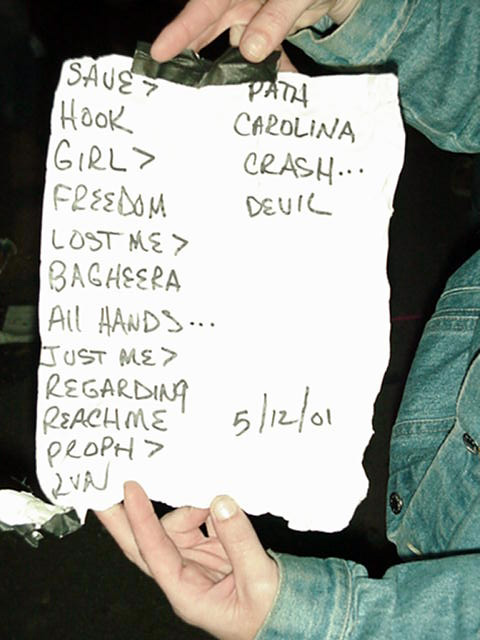 SAVE >
HOOK
GIRL >
FREEDOM
LOST ME >
BAGHEERA
All HANDS...
JUST ME >
REGARDING
REACH ME
PROPH >
RUN
PATH
CAROLINA
CRASH...
DEVIL
5/12/01